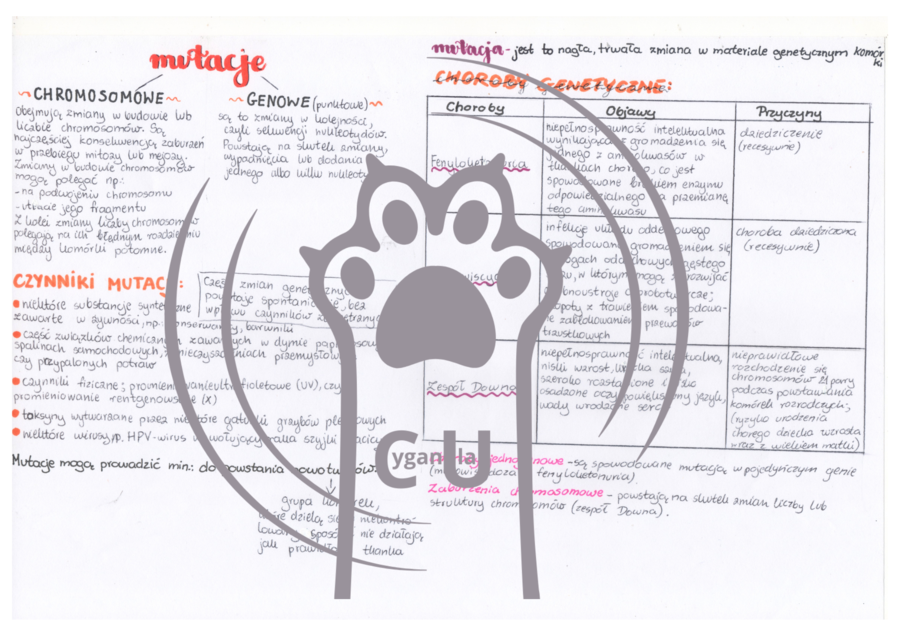 mutacje
~CHROMOSOMOWE~
Obejmują zmiany w budowie lub
liczbie chromosomów. Są
najczęściej konsekwencją zaburzeń
w przebiegu mitozy lub mejozy.
Zmiany w budowie chromosomów
mogą polegać np:
-na podwojeniu chromosomu
-utracie jego fragmentu
Z kolei zmiany liczby chromosomów
polegają na ich błędnym rozdzieleniu
między komórki potomne.
GENOWE (punktowe)~
są to zmiany w kolejności,
czyli sekwencji nukleotydów.
Powstają na skutek zamiany,
wypadnięcia lub dodania
jednego albo kilku
CZYNNIKI MUTACJI:
Część zmian
powstaje spontanicznie, bez
wpływu czynników zewnętrznych
• niektóre substancje syntetyczne
zawarte w żywności, np. konserwanty, barwniki
• część związków chemicznych zawartych w dymie
spalinach samochodowych, zanieczyszczeniach
czy przypalonych potraw
• czynniki fizyczne; ultrafioletowe (UV), czy
promieniowanie rentgenowskie (X)
• toksyny wytwarzane przez niektóre gatunki grzybów pleśniowych
• niektóre wirusy, np. HPV-wirus wywołujący raka szyjki macicy
Mutacje mogą prowadzić min.: do powstania nowotworów.
grupa komórek,
które dzielą się w
sposób i nie działają
jak prawidłowa tkanka
mutacja - jest to nagła, trwała zmiana w materiale genetycznym komór
ki
CHOROBY GENETYCZNE:
Choroby Objawy Przyczyny
Fenyloketonuria
niepełnosprawność intelektualna
wynikająca z gromadzenia się
jednego z aminokwasów w
tkankach chorego, co jest
spowodowane brakiem enzymu
odpowiedzialnego za przemianę
tego aminokwasu
dziedziczenie
(recesywne)
infekcje układu oddechowego
spowodowane gromadzeniem się
drogach oddechowych gęstego
śluzu, w którym mogą się rozwijać
drobnoustroje chorobotwórcze;
kłopoty z trawieniem spowodowa-
ne zablokowaniem przewodów
trzustkowych
choroba dziedziczona
(recesywnie)
Zespół Downa
niepełnosprawność intelektualna,
niski wzrost, krótka szyja,
szeroko rozstawione i skośno
osadzone oczy, powiększony język,
wady wrodzone serca
nieprawidłowe
rozchodzenie się
chromosomów 21 pary
podczas powstawania
komórek rozrodczych;
(ryzyko urodzenia
chorego dziecka wzrasta
wraz z wiekiem matki)
Choroby jednogenowe - są spowodowane mutacją w pojedynczym genie
(mukowiscydoza, fenyloketonuria).
Zaburzenia chromosomowe - powstają na skutek zmian liczby lub
struktury chromosomów (zespół Downa).
CU